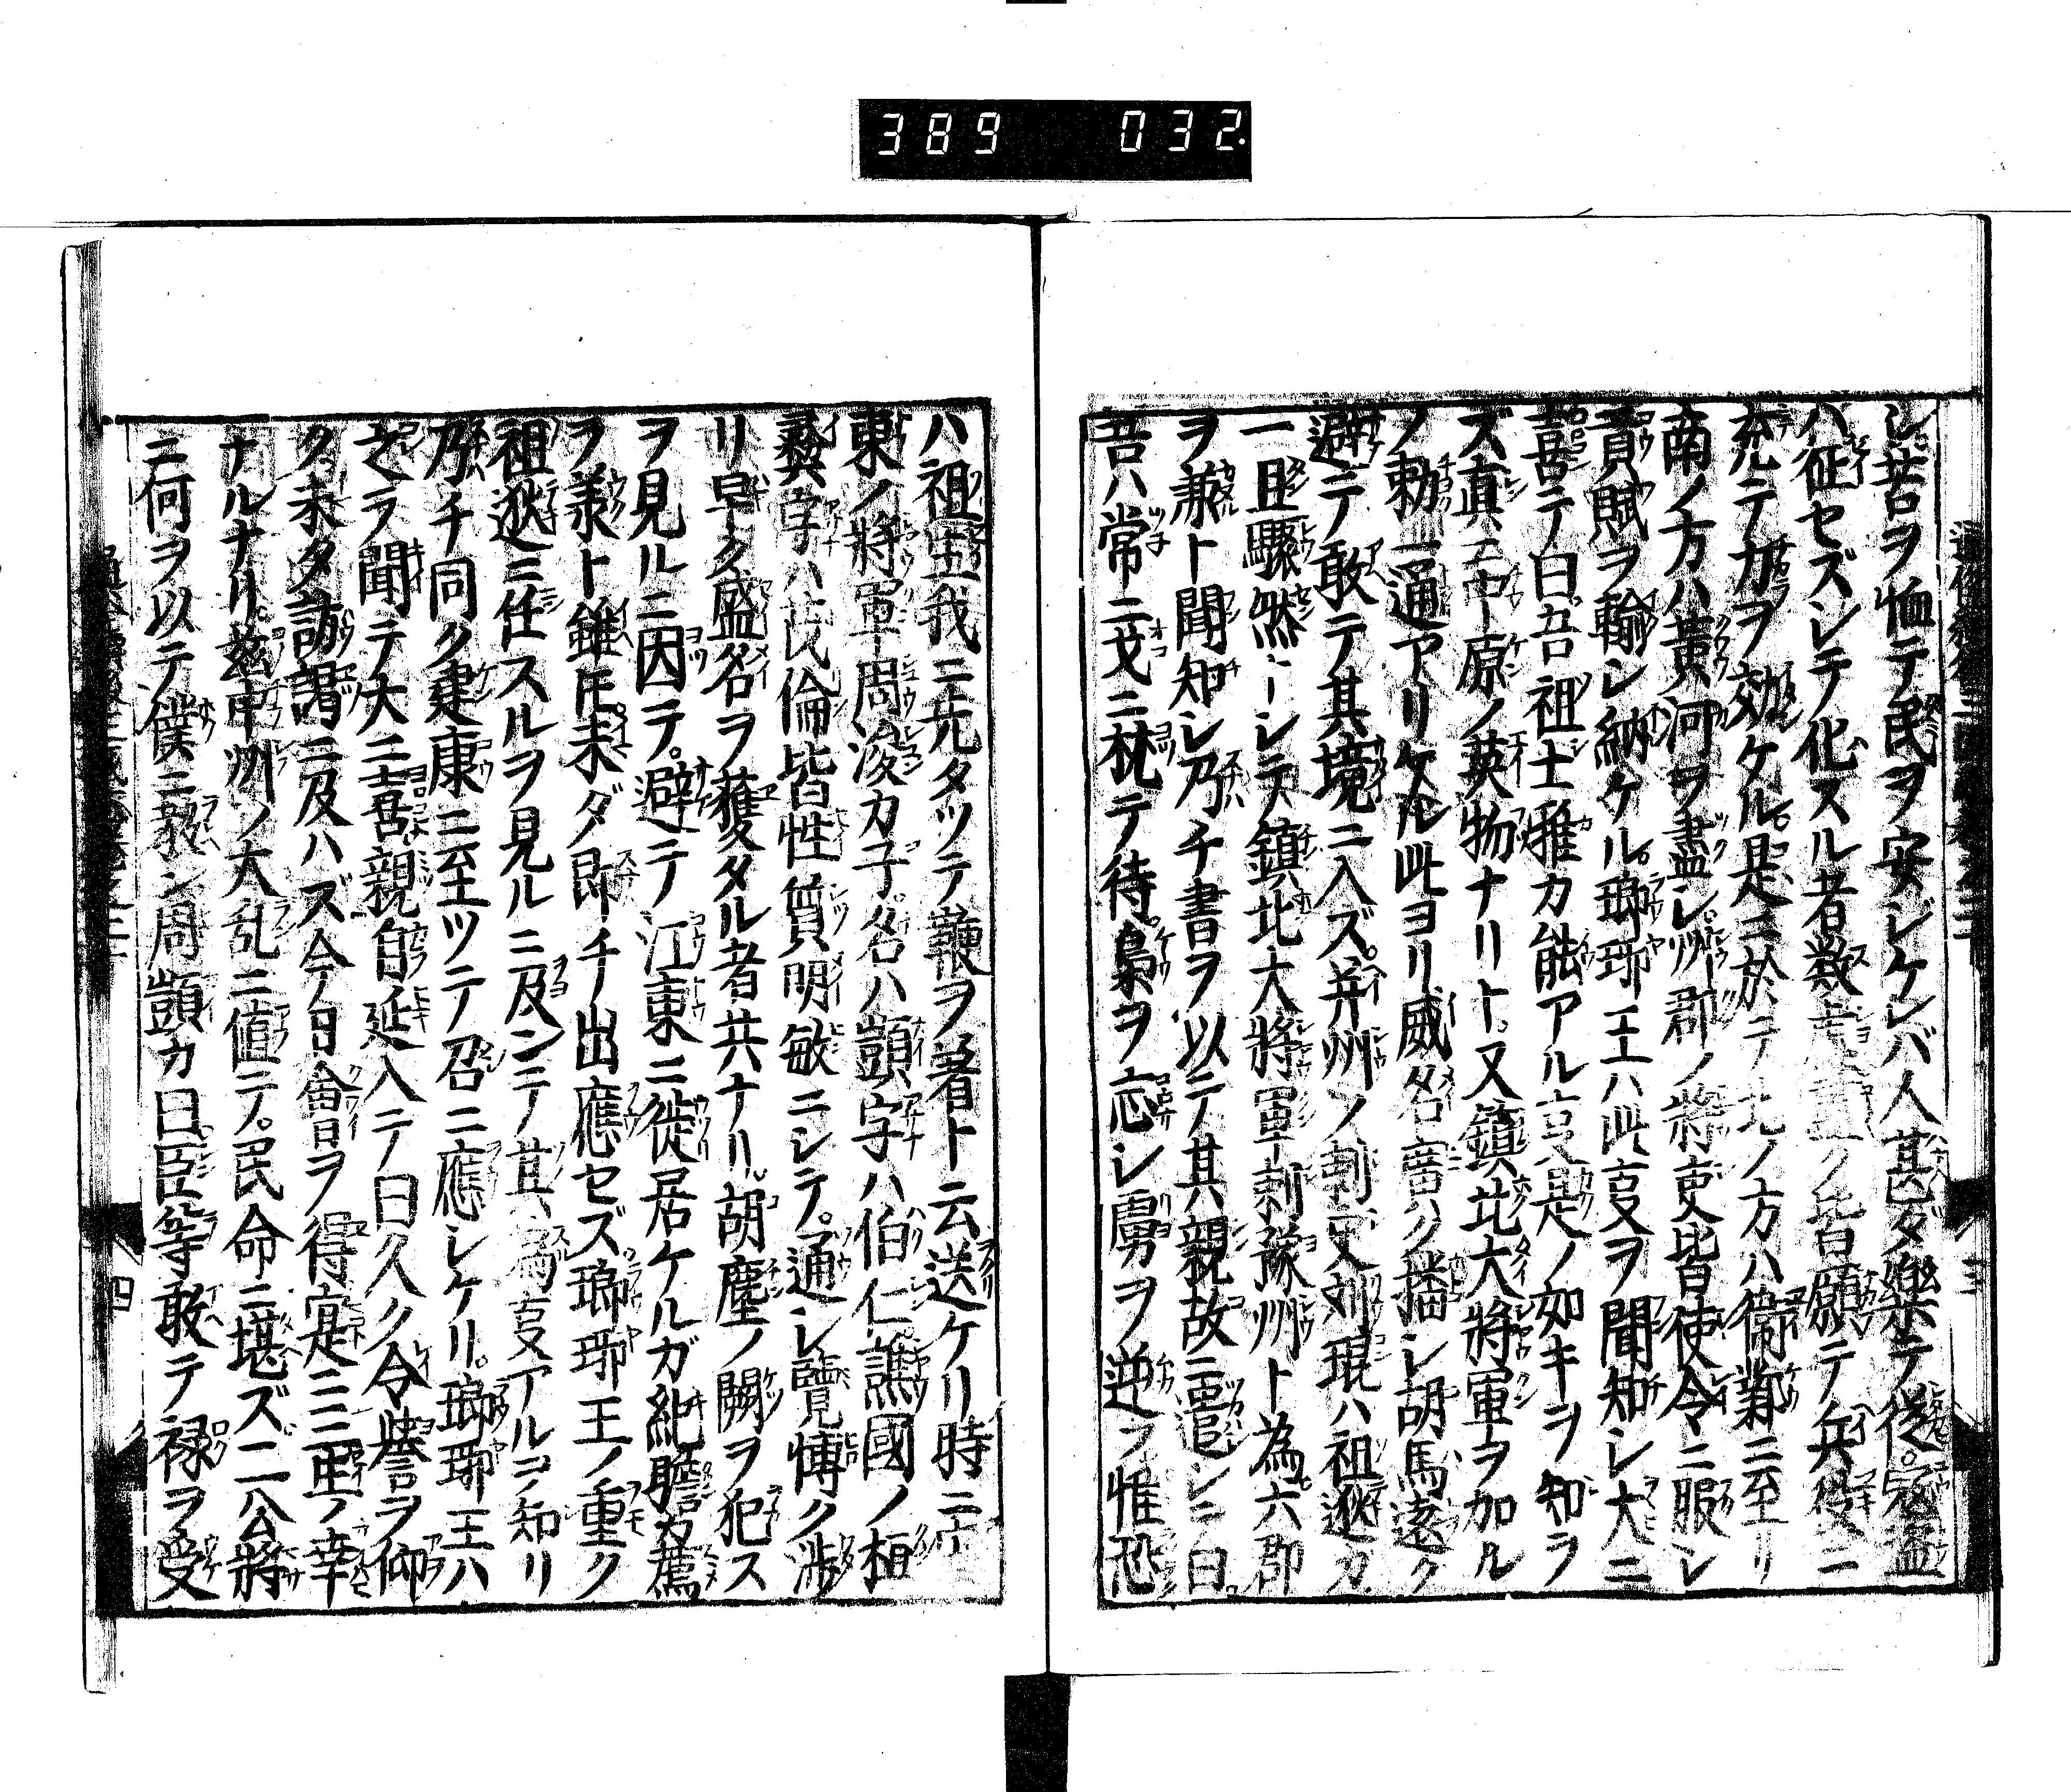 389 032
シ苦ヲ恤テ民ヲ安ジケレバ人甚ダ樂テ從
ハ征セズシテ化スル者数 皆願テ兵役ニ
充ニテ力ヲ効ケル是ニ於テ北ノ方ハ衛 ニ至リ
南ノ方ハ黄河ヲ盡シ州郡ノ將吏皆使令ニ服シ
貢賦ヲ輸シ納ケル瑯琊王ハ此叓ヲ聞知シ大ニ
喜テ曰吾祖士雅カ能アル叓是ノ如キヲ知ラ
ズ真ニ中原ノ英物ナリト又鎮北大將軍ヲ加ル
ノ勅一通アリケル此ヨリ威名廣ク播シ胡馬遠ク
避テ敢テ其境ニ入ズ并州ノ刺史刘琨ハ祖逖カ
一旦驟然トシテ鎮北大將軍刺豫州ト為六郡
ヲ兼ト聞知シ乃チ書ヲ以テ其親故ニ遣シニ曰
吾ハ常ニ戈ニ枕テ待梟ヲ忘シ虜ヲ逆フ惟恐
三
ハ祖生我ニ先タツテ鞭ヲ着ト云送ケリ時ニ
東ノ將軍周浚カ子名ハ顗字ハ伯仁譙國ノ桓
彛字ハ茂倫皆性質明敏ニシテ通シ覽慱ク渉
リ早ク盛名ヲ獲タル者共ナリ胡塵ノ闕ヲ犯ス
ヲ見ルニ因テ避テ江東ニ徙居ケルガ紀瞻カ薦
ヲ羕ト雖モ未ダ即チ出應セズ瑯琊王ノ重ク
祖逖ニ任スルヲ見ルニ及ンテ其為叓アルヲ知リ
乃チ同ク建康ニ至ツテ召ニ應シケリ瑯琊王ハ
之ヲ聞テ大ニ喜親自延入テ曰久ク令譽ヲ仰
ク未タ訪謁ニ及ハズ今日會ヲ得寔ニ三王ノ幸
ナルナリ茲中州ノ大乱ニ値テ民命ニ堪ズ二公將
ニ何ヲ以テ僕ニ教シ周顗カ曰臣等敢テ禄ヲ受
四